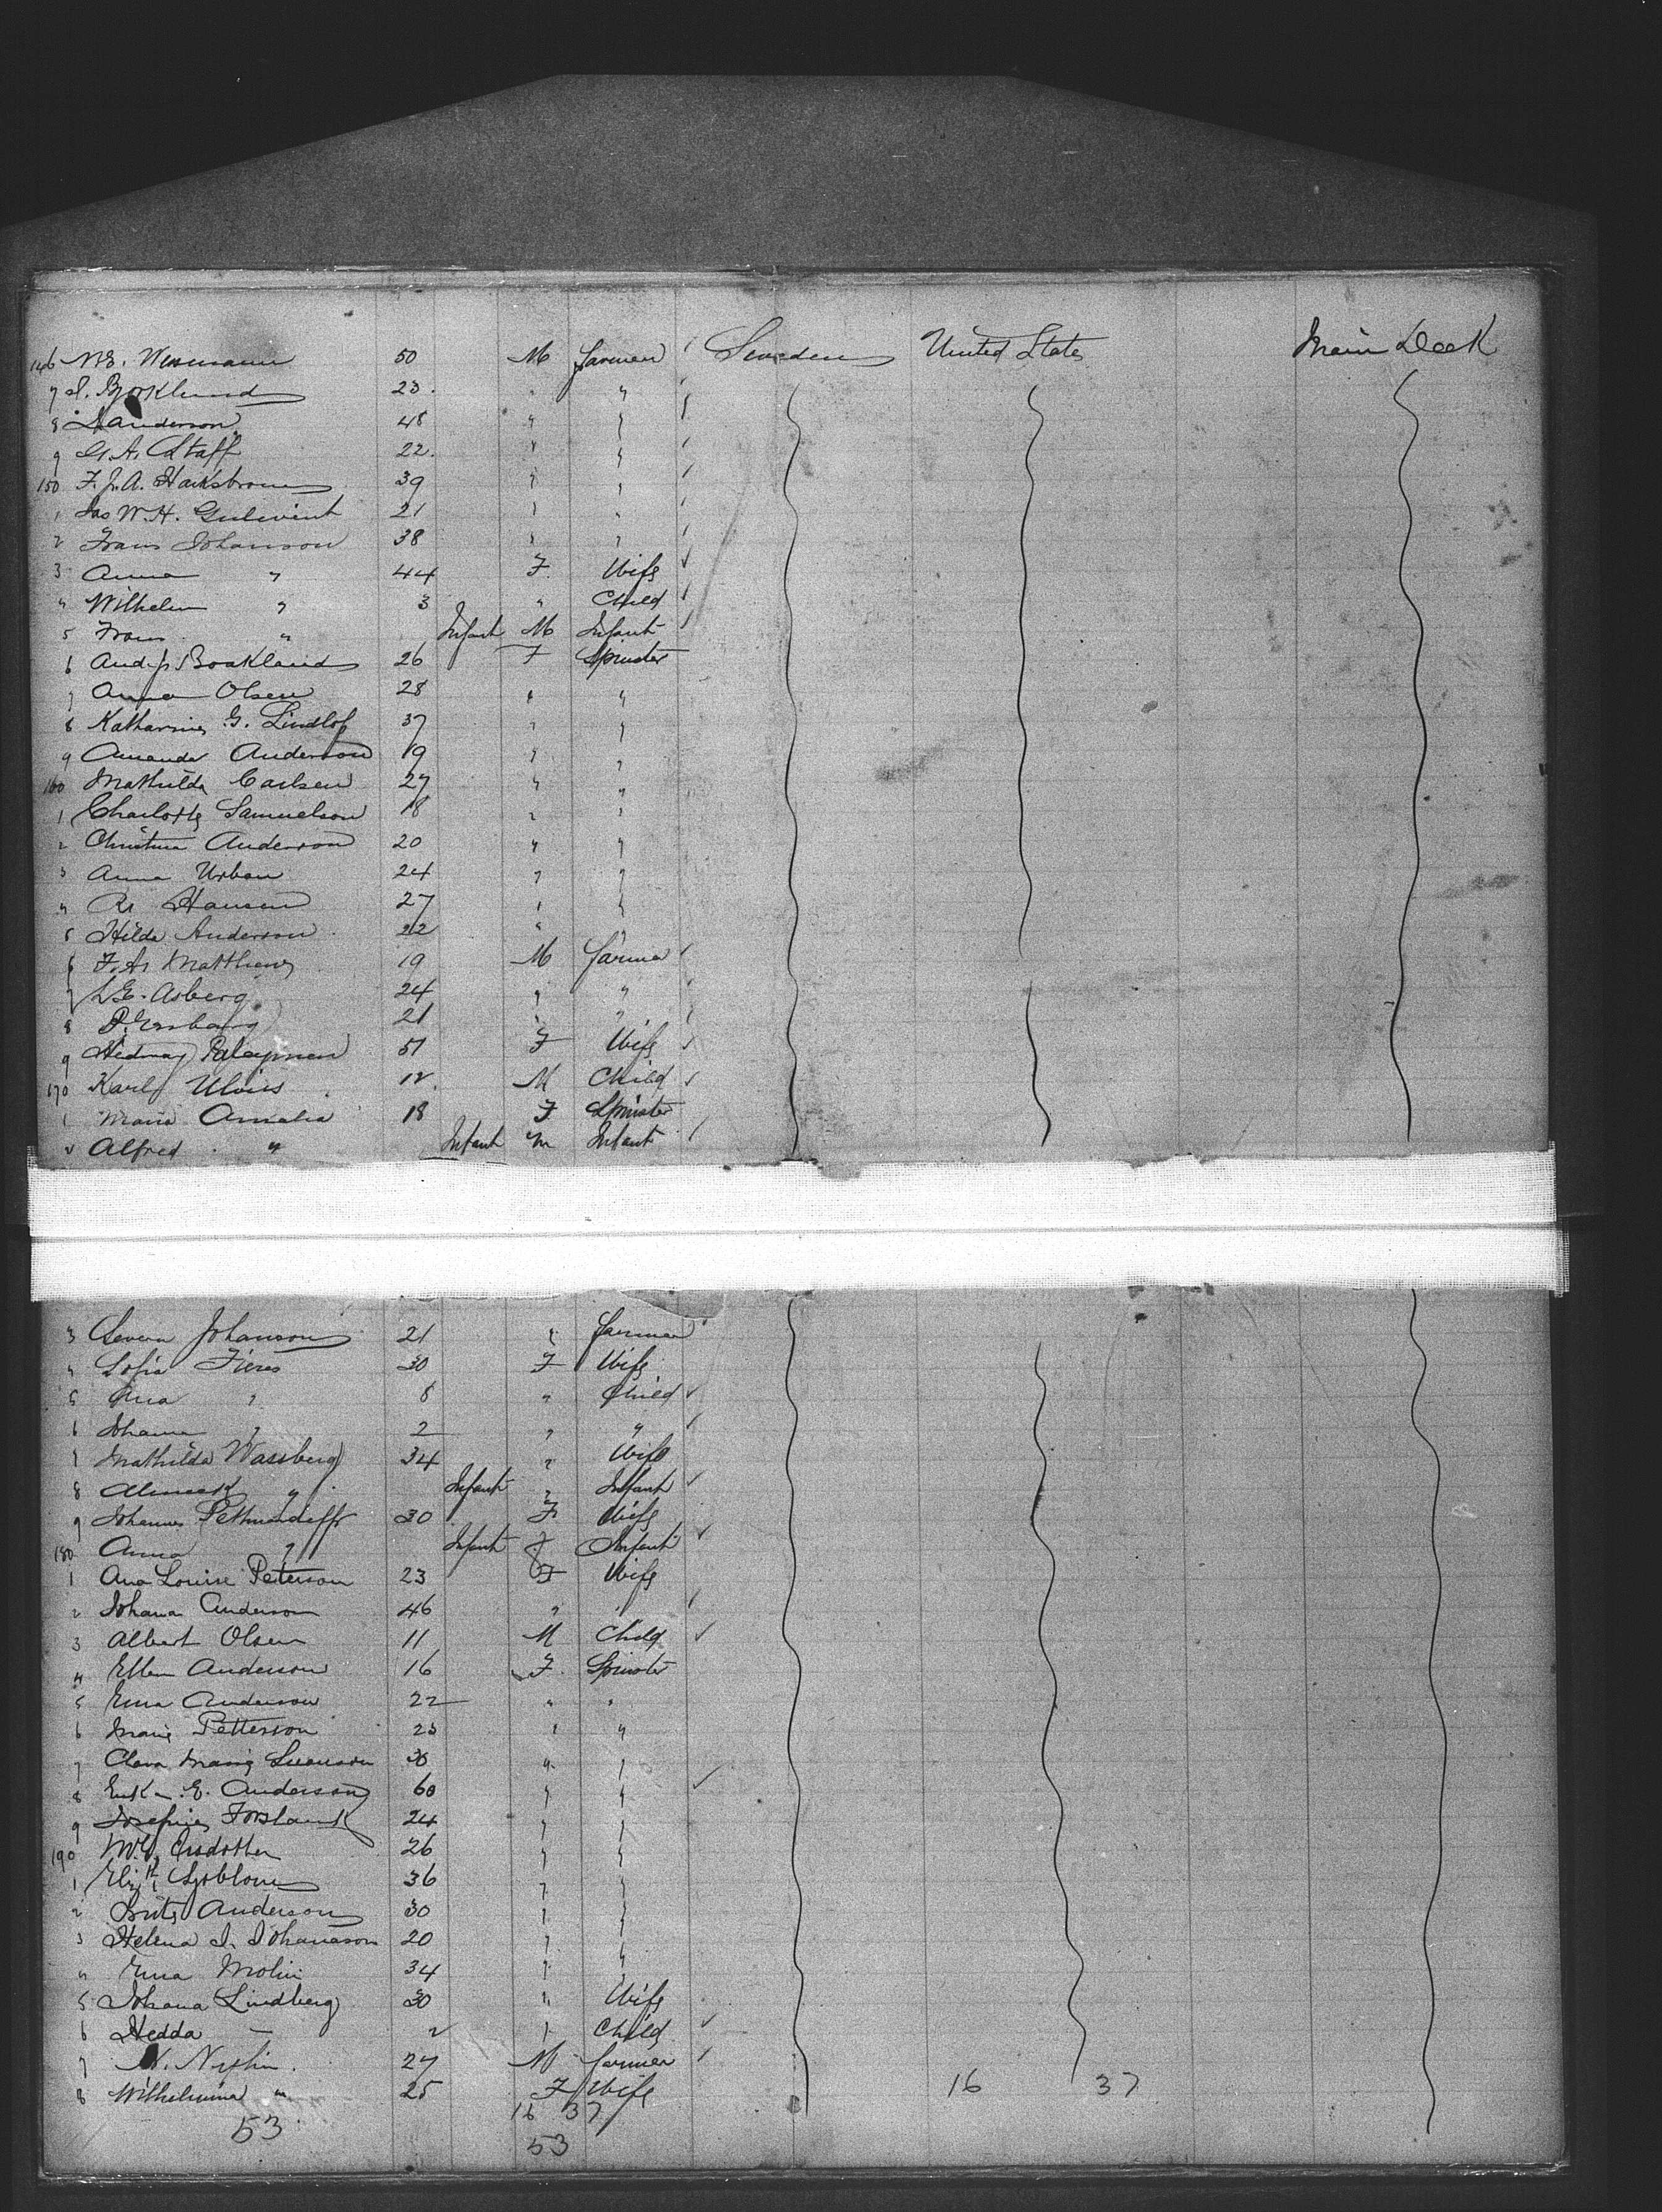 146 50 M Farmer Sweden United States Main Deck
7 J. Bjorklund 23 " "
8 Anderson 48 " "
9 G. A. Staff 22 " "
150 F. J. A. 39 " "
1 W. H. 21 " "
2 Frans Johanson 38 " "
3 Anna " 44 F Wife
4 Wilhelm " 3 " Child
5 Frans " Infant M Infant
6 26 F Spinster
7 Anna Olsen 28 " "
8 Katharina G. Lindlof 37 " "
9 Amanda Anderson 19 " "
160 Mathilda Carlsen 27 " "
1 Charlotte Samuelson 18 " "
2 Christina Anderson 20 " "
3 Anna Urban 24 " "
4 Hansen 27 " "
5 Hilda Anderson 22 " "
6 F. A. Matthews 19 M Farmer
7 Asberg 24 " "
8 21 " "
9 51 F Wife
170 Karl 12 M Child
1 Maria Amalia 18 F Spinster
2 Alfred " Infant M Infant
3 Johanson 21 " Farmer
4 Sofia 30 F Wife
5 Ana " 8 " Child
6 Johana " 2 " "
7 Mathilda Wassberg 34 " Wife
8 " Infant " Infant
9 30 F Wife
180 Anna " Infant F Infant
1 Ana Louise Peterson 23 F Wife
2 Johana Anderson 46 " "
3 Albert Olsen 11 M Child
4 Ellen Anderson 16 F Spinster
5 Erna Anderson 22 " "
6 Marie Petterson 23 " "
7 Clara Marie Swenson 30 " "
8 E. Anderson 60 " "
9 Josefine 24 " "
190 26 " "
1 Elizth Sjoblom 36 " "
2 Anderson 30 " "
3 Helena J. Johanason 20 " "
4 Erna Molin 34 " "
5 Johana Lindberg 30 " Wife
6 Hedda — 2 " Child
7 N. 27 M Farmer
8 Wilhelmina " 25 F Wife 16 37
16 37
53
53